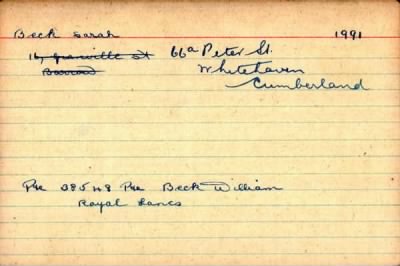 Beck Sarah 1991
16, Granville St 66a Peter St.
Barrow Whitehaven
Cumberland
Pte 38548 Pte Beck William
Royal Lancs